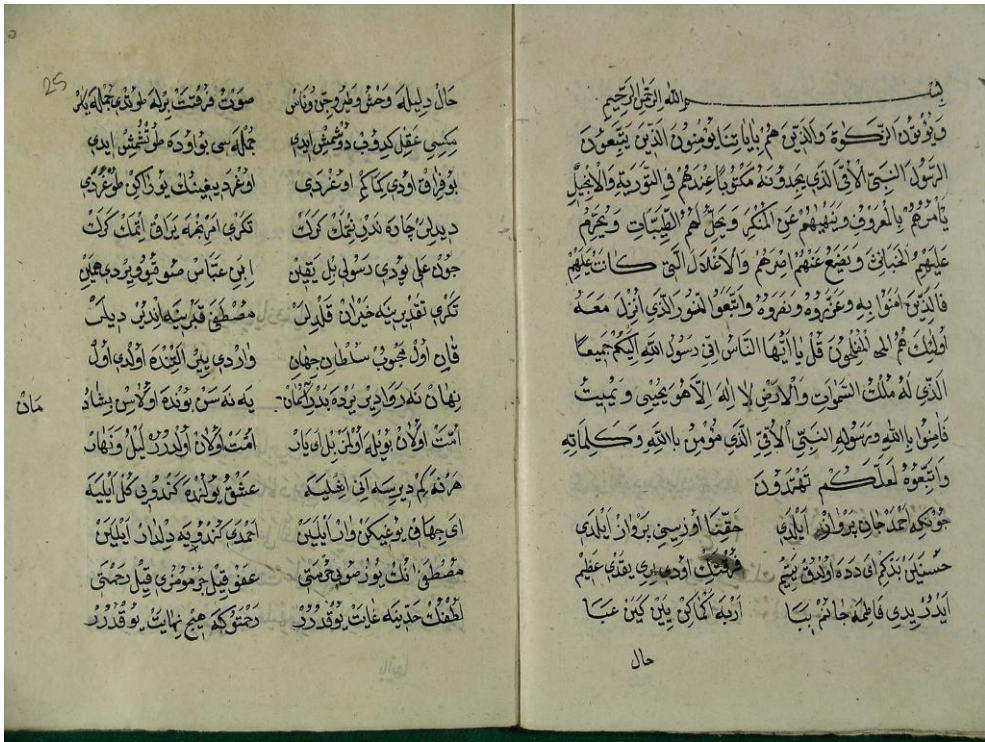 بسم الله الرحمن الرحيم
ويؤتون الزكوة والذين هم باياتنا يؤمنون الذين يتبعون
الرسول النبي الامي الذي يجدونه مكتوبا عندهم في التورية والانجيل
يأمرهم بالمعروف وينهيهم عن المنكر ويحل لهم الطيبات ويحرم
عليهم الخبائث ويضع عنهم اصرهم والاغلال التي كانت عليهم
فالذين امنوا به وعزروه ونصروه واتبعوا النور الذي انزل معه
اولئك هم المفلحون قل يا ايها الناس اني رسول الله اليكم جميعا
الذي له ملك السموات والارض لا اله الا هو يحيى ويميت
فامنوا بالله ورسوله النبي الامي الذي مؤمن بالله وكلماته
واتبعوه لعلكم تهتدون
چونكه احمد جان پروانه ايلدى حقتا اوزيني پرواز ايلدى
اولدق يتيم فرقتك اودى يقدى عظيم
ايدر يدى فاطمه جانم ببا عبا
حال
25
حال دليله وحش وطير وجن وناس صوت فرقت برله طولدى جمله ير
عقل دوشمش ايدى جمله سى بو اوده طوتشمش ايدى
بو فراق اودى كما كم اوغردى
ديدلر چاره ندر نتمك كرك تكرى امرينه يراق اتمك كرك
چون على يودى رسولى بل يقين ابن عباس صو قيو ويردى همين
تكرى تقديرينه حيران قلدلر مصطفى قبرينه اندر ديلر
قان اول محبوب سلطان جهان واردى ير التنده اولدى اول
نهان نه روادير يرده يه نه سن بونده اولاسن بشاد
مان
امت اولان بويله اولمز بل اى يار امت اولان اولدر ليل ونهار
هر نه كم ديرسه انى اشليه عشق يولنده كندوبى كل ايليه
اى جهانى يوغيكن وار ايلين احمدى كندويه دلدار ايلين
مصطفى انك يوزى صويى حرمتى عفو قيل جرمومزى قيل رحمتى
لطفك حدينه غايت يوقدرر رحمتوكه هيچ نهايت يوقدرر